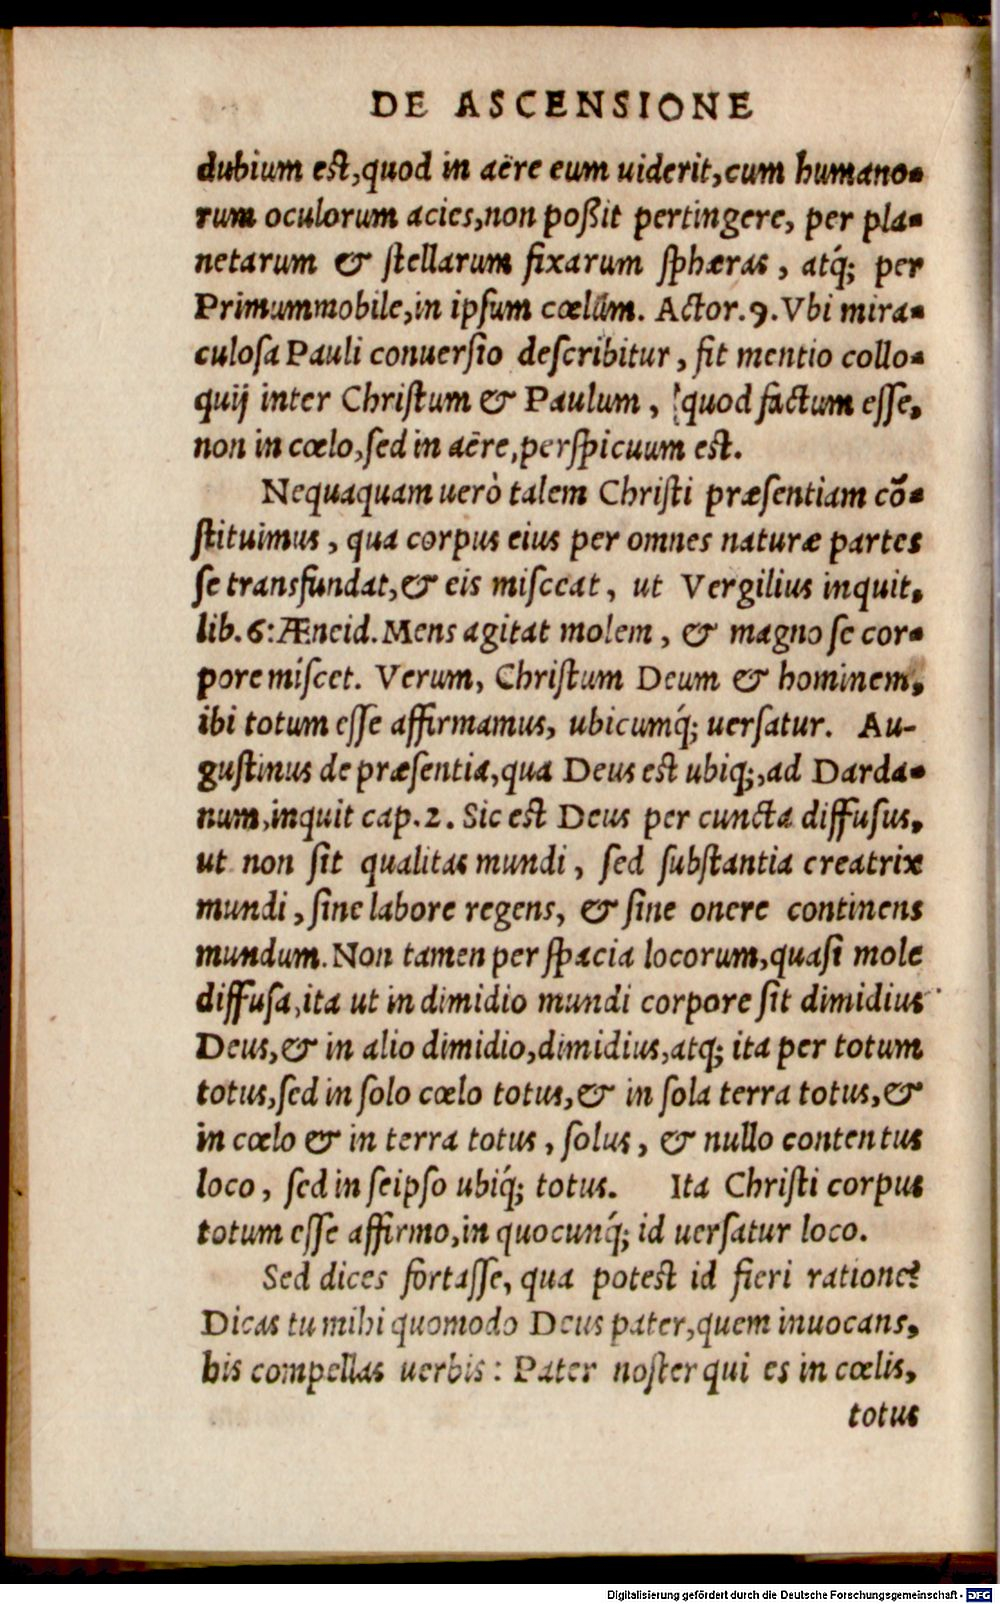 DE ASCENSIONE
dubium est, quod in aëre eum uiderit, cum humano-
rum oculorum acies, non poßit pertingere, per pla-
netarum & stellarum fixarum sphæras, atq́; per
Primummobile, in ipsum cœlum. Actor. 9. Vbi mira-
culosa Pauli conuersio describitur, fit mentio collo-
quij inter Christum & Paulum, quod factum esse,
non in cœlo, sed in aëre, perspicuum est.
Nequaquam uerò talem Christi præsentiam cō-
stituimus, qua corpus eius per omnes naturæ partes
se transfundat, & eis misceat, ut Vergilius inquit,
lib. 6: Æneid. Mens agitat molem, & magno se cor-
pore miscet. Verum, Christum Deum & hominem,
ibi totum esse affirmamus, ubicumq́; uersatur. Au-
gustinus de præsentia, qua Deus est ubiq;, ad Darda-
num, inquit cap. 2. Sic est Deus per cuncta diffusus,
ut non sit qualitas mundi, sed substantia creatrix
mundi, sine labore regens, & sine onere continens
mundum. Non tamen per spacia locorum, quasi mole
diffusa, ita ut in dimidio mundi corpore sit dimidius
Deus, & in alio dimidio, dimidius, atq; ita per totum
totus, sed in solo cœlo totus, & in sola terra totus, &
in cœlo & in terra totus, solus, & nullo contentus
loco, sed in seipso ubiq́; totus. Ita Christi corpus
totum esse affirmo, in quocunq́; id uersatur loco.
Sed dices fortasse, qua potest id fieri ratione?
Dicas tu mihi quomodo Deus pater, quem inuocans,
his compellas uerbis: Pater noster qui es in cœlis,
totus
Digitalisierung gefördert durch die Deutsche Forschungsgemeinschaft - DFG